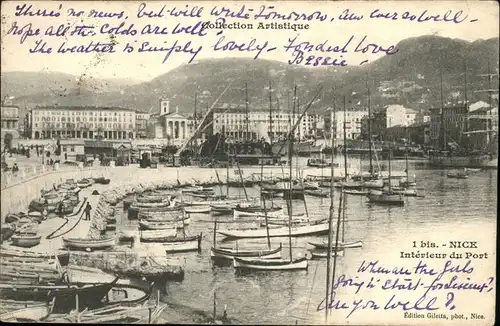 There's no news, but will write Tomorrow, am ever so well -
Collection Artistique
Hope all the Colds are well.
The weather is simply lovely - Fondest love
Bessie
1 bis. - NICE
Intérieur du Port
When are the girls
going to start for Simla?
Are you well?
Édition Giletta, phot., Nice